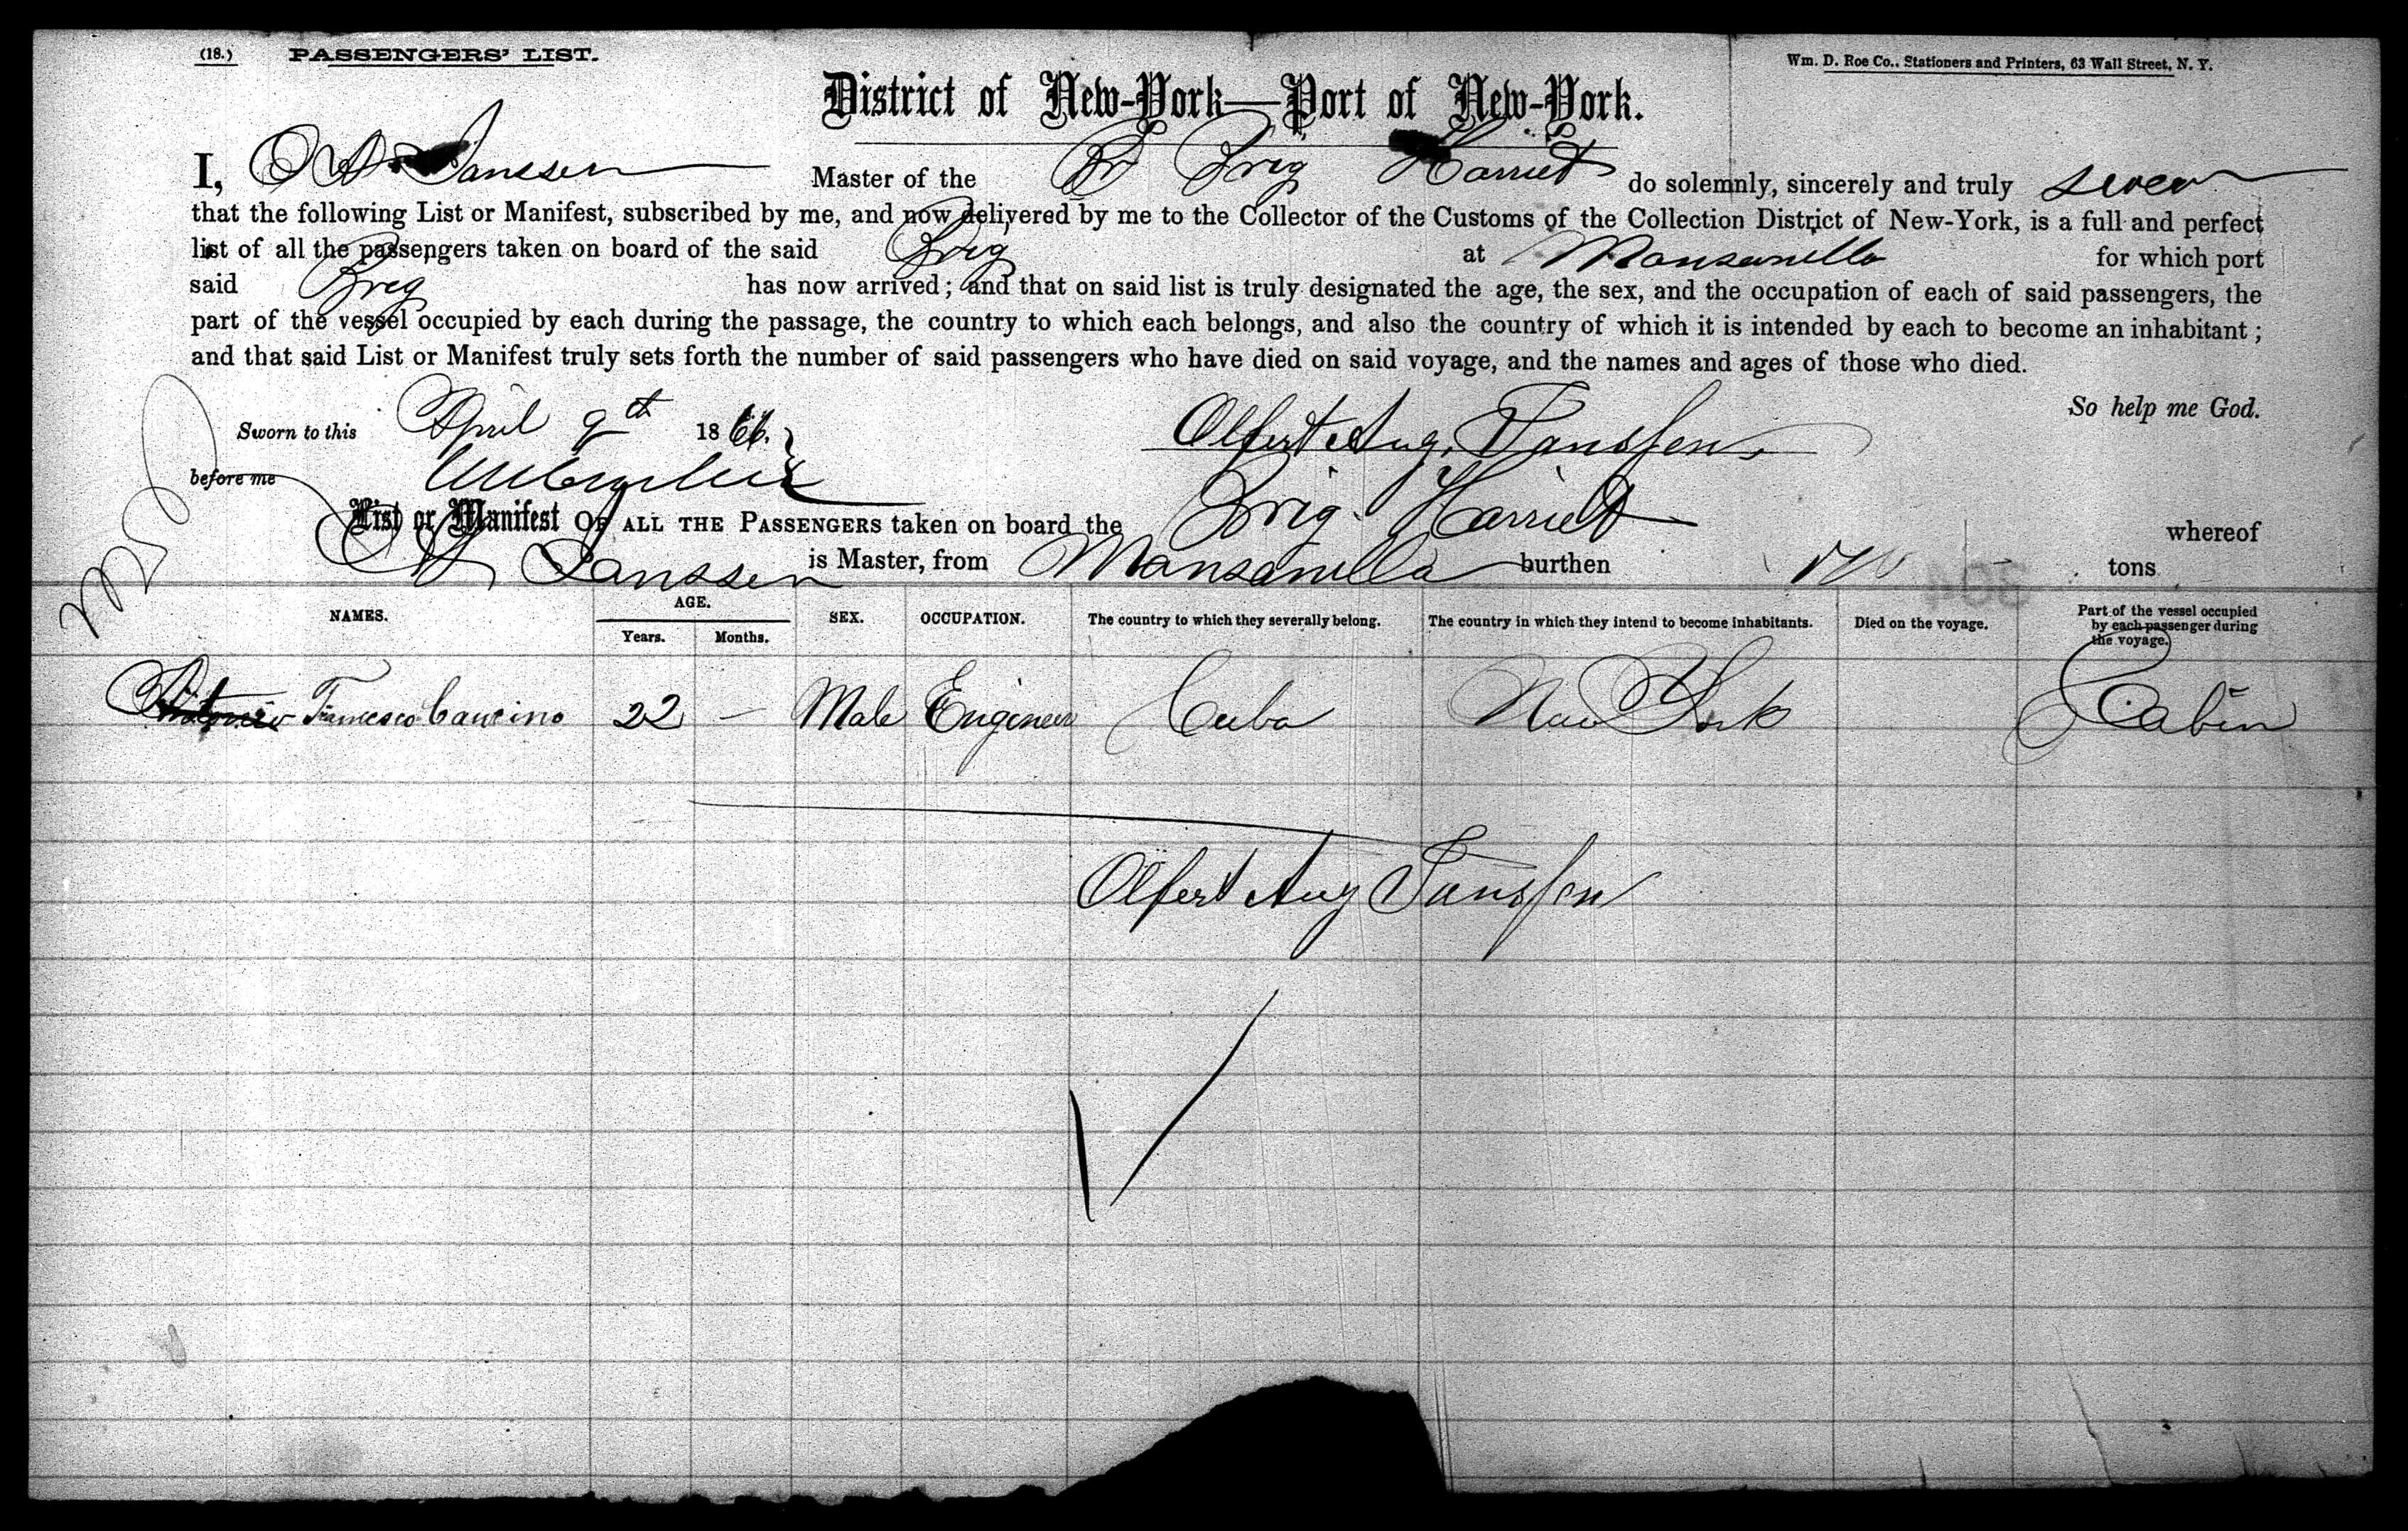 (18.) PASSENGERS' LIST.
Wm. D. Roe Co., Stationers and Printers, 63 Wall Street, N. Y.
District of New-York—Port of New-York.
I, O A Janssen Master of the Br Brig Harriet do solemnly, sincerely and truly swear
that the following List or Manifest, subscribed by me, and now delivered by me to the Collector of the Customs of the Collection District of New-York, is a full and perfect
list of all the passengers taken on board of the said Brig at Mansanilla for which port
said Brig has now arrived; and that on said list is truly designated the age, the sex, and the occupation of each of said passengers, the
part of the vessel occupied by each during the passage, the country to which each belongs, and also the country of which it is intended by each to become an inhabitant;
and that said List or Manifest truly sets forth the number of said passengers who have died on said voyage, and the names and ages of those who died.
So help me God.
Sworn to this April 9th 1866. Olfert Aug. Janssen
before me
List or Manifest OF ALL THE PASSENGERS taken on board the Brig Harriet whereof
O A Janssen is Master, from Mansanilla burthen tons
NAMES. AGE. Years. Months. SEX. OCCUPATION. The country to which they severally belong. The country in which they intend to become inhabitants. Died on the voyage. Part of the vessel occupied by each passenger during the voyage.
Antonio Francesco Cancino 22 — Male Engineer Cuba New York Cabin
Olfert Aug Janssen